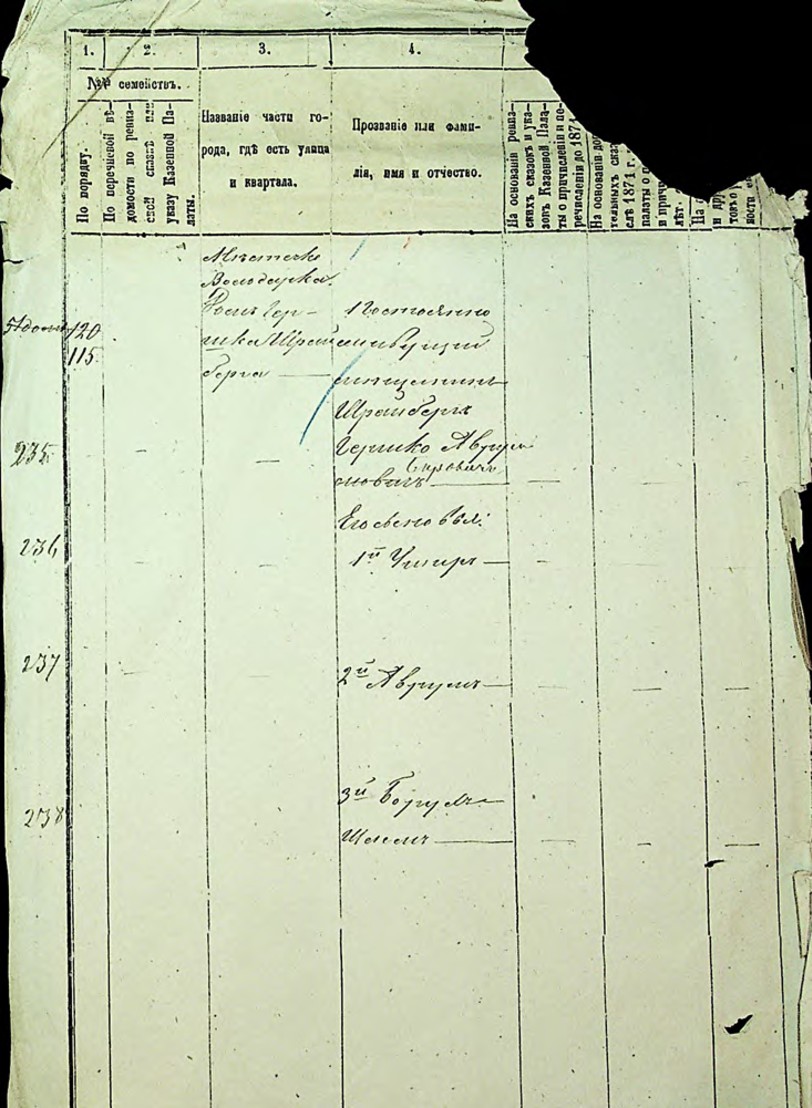 1. 2. 3. 4.
№№ семействъ.
По порядку.
По перечневой вѣ-
домости по ревиз-
ской сказкѣ или
указу Казенной Па-
латы.
Названіе части го-
рода, гдѣ есть улица
и квартала.
Прозваніе или фами-
лія, имя и отчество.
На основаніи ревиз-
скихъ сказокъ и ука-
зовъ Казенной Пала-
ты о причисленіи и пе-
речисленіи до 1871
На основаніи до
тельныхъ сказ
слѣ 1871 г.
палаты о п
и причи
лѣт.
На о
и дру
товъ о
ности
Мѣстечко
Володарка.
Домъ Гер-
шка Шрай
берга
120
115
Постоянно
живущій
мѣщанинъ
Шрайбергъ
235
Гершко Авру
мовичъ
Его сыновья:
236
1й Ушеръ
237
2й Аврумъ
238
3й Борухъ